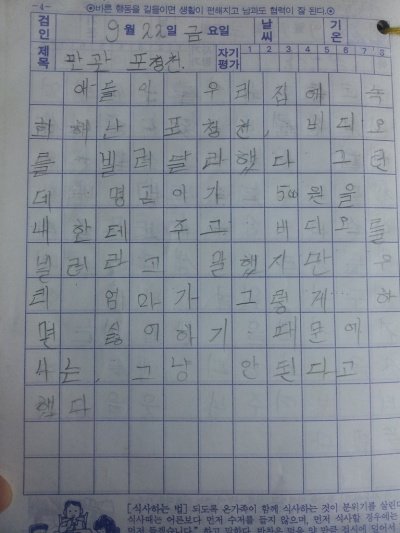 -4- ⊙바른 행동을 길들이면 생활이 편해지고 남과도 협력이 잘 된다.⊙
검인 9월 22일 금요일 날씨 기온
제목 판관 포청천. 자기평가 1 2 3 4 5 6 7 8
애들이 우리집에 녹
화해난 포청천, 비디오
를 빌려달라했다 그런
데 명곤이가 500원을
내한테 주고 비디오를
빌려라고 말했지만 우
리 엄마가 그렇게 하
면 싫어하기 때문에
나는, 그냥 안된다고
했다
[식사하는 법] 되도록 온가족이 함께 식사하는 것이 분위기를 살린다
식사때는 어른보다 먼저 수저를 들지 않으며, 먼저 식사할 경우에는